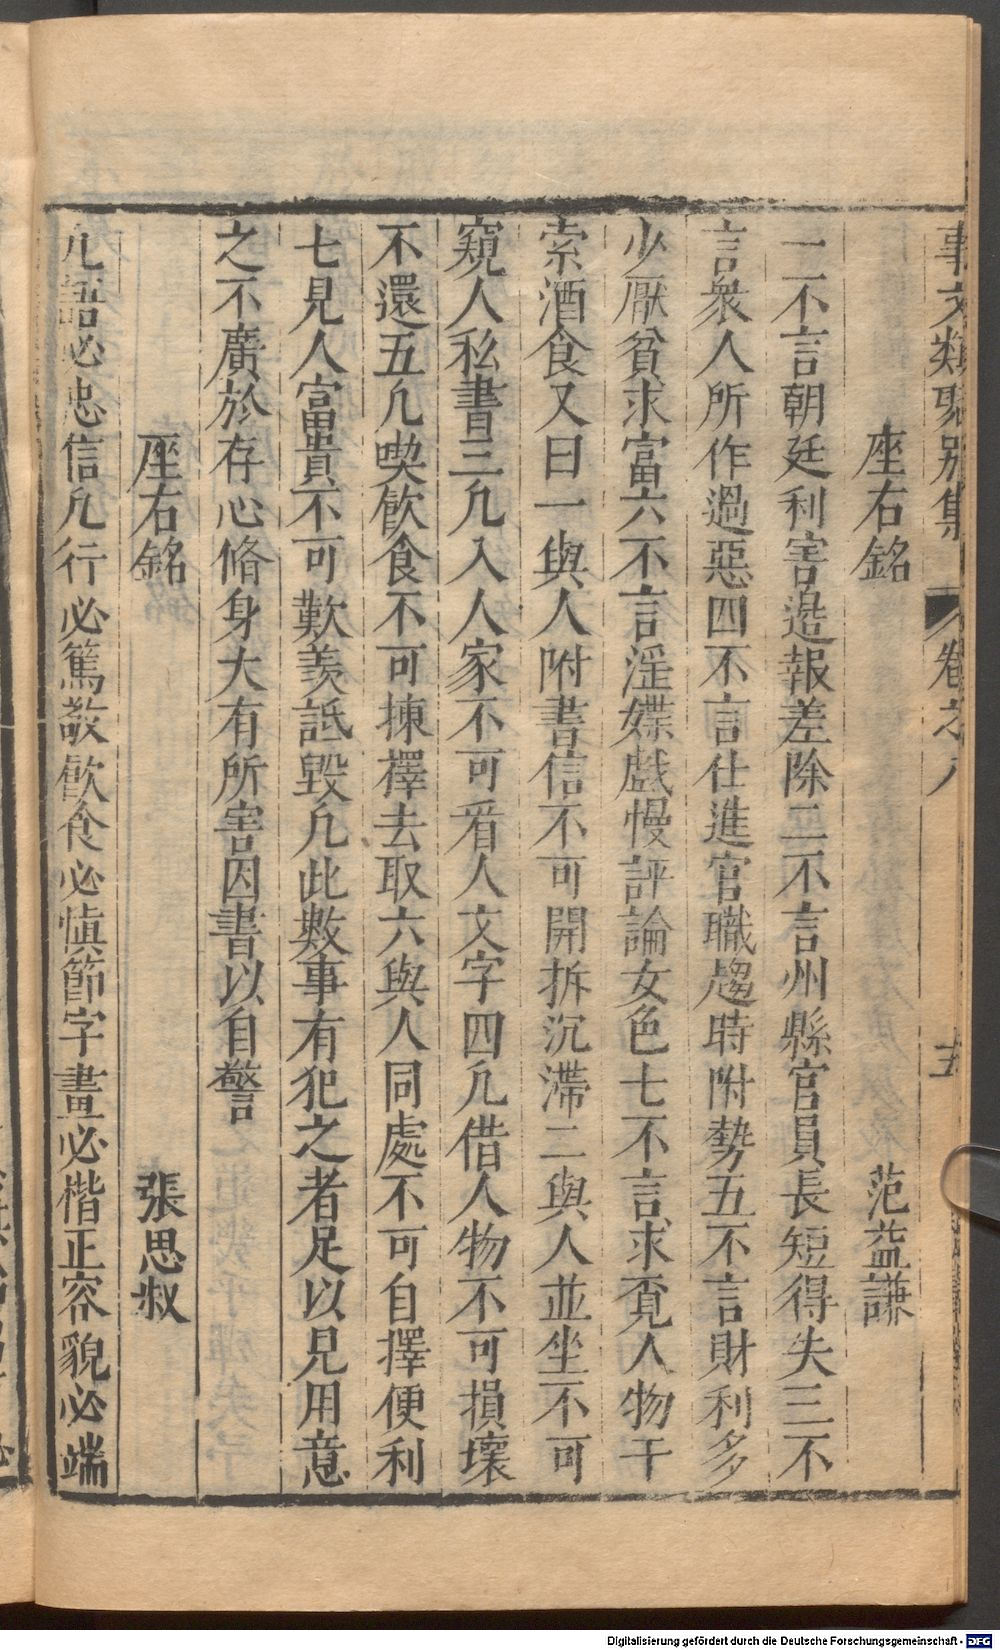 事文類聚別集 卷之八 十五
座右銘 范益謙
一不言朝廷利害邉報差除二不言州縣官員長短得失三不
言衆人所作過惡四不言仕進官職趨時附勢五不言財利多
少厭貧求富六不言淫媟戲慢評論女色七不言求覔人物干
索酒食又曰一與人附書信不可開拆沉滯二與人並坐不可
窺人私書三凡入人家不可看人文字四凡借人物不可損壞
不還五凡喫飮食不可揀擇去取六與人同處不可自擇便利
七見人富貴不可歎羨詆毀凡此數事有犯之者足以見用意
之不廣於存心脩身大有所害因書以自警
座右銘 張思叔
凡語必忠信凡行必篤敬飮食必愼節字畫必楷正容貌必端
Digitalisierung gefördert durch die Deutsche Forschungsgemeinschaft - DFG